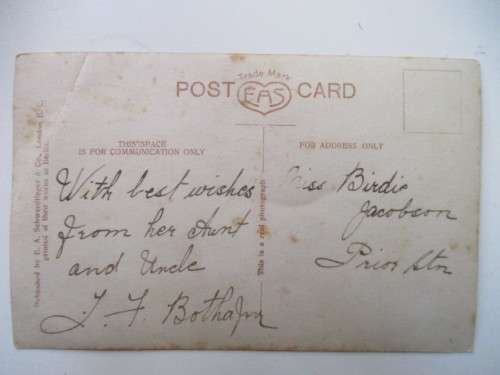 Trade Mark
POST EAS CARD
THIS SPACE
IS FOR COMMUNICATION ONLY
FOR ADDRESS ONLY
With best wishes
from her Aunt
and Uncle
Miss Birdie
Jacobson
Prior Stn
Published by E. A. Schwerdtfeger & Co., London E. C.
printed at their works at Berlin.
This is a real photograph